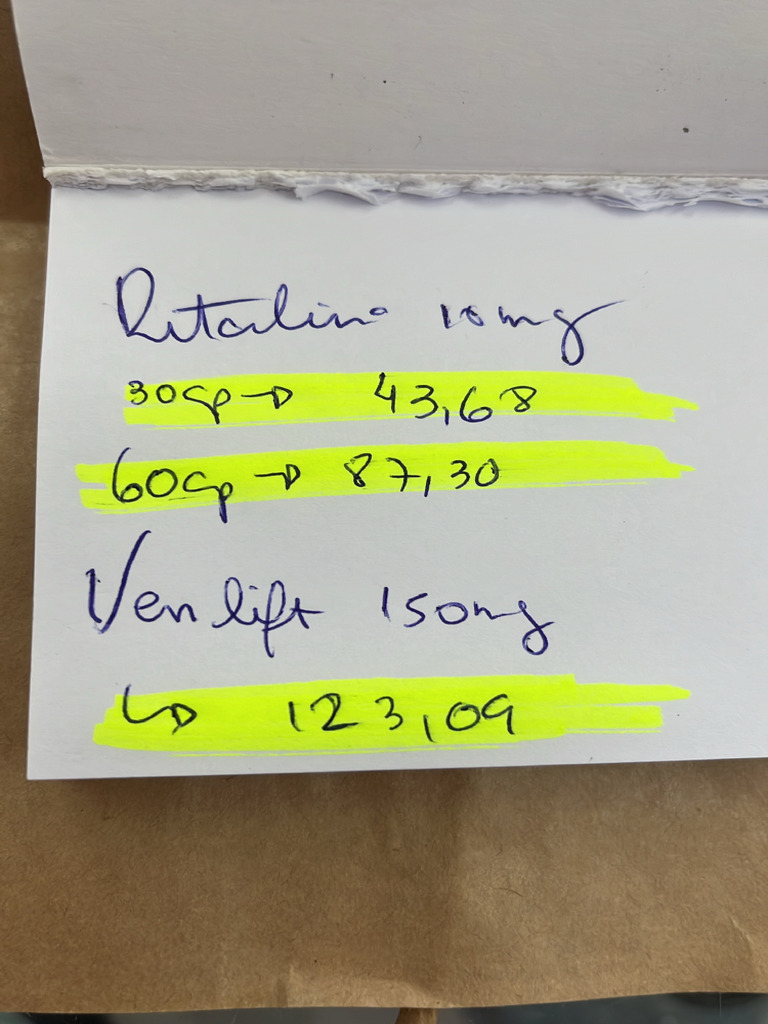 Ritalina 10mg
30cp → 43,68
60cp → 87,30
Venlift 150mg
↳ 123,09